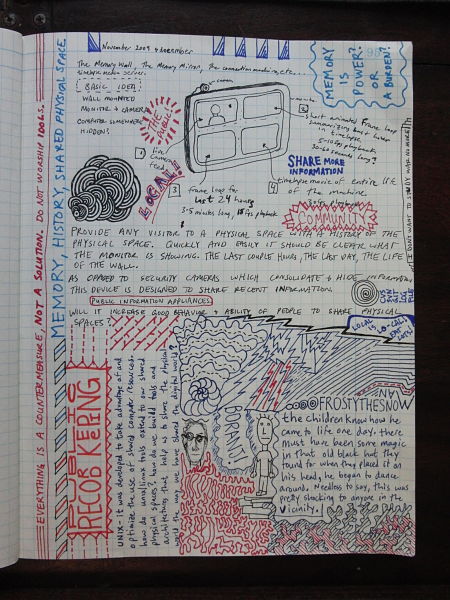 November 2009
The Memory Wall, The Memory Mirror, the connection machine, etc...
timelapse media server.
BASIC IDEA
WALL MOUNTED
MONITOR & CAMERA
COMPUTER SOMEWHERE
HIDDEN?
camera
monitor
THE PUBLIC
LOCAL!
1
live
camera
feed
2
short animated frame loop
summarizing last 4 hours
in timelapse
playback
30-60 seconds long?
3
frame loop for
last 24 hours
3-5 minutes long, playback
4
timelapse movie of entire life
of the machine.
SHARE MORE
INFORMATION
COMMUNITY
MEMORY
IS
POWER?
OR
A BURDEN?
I DON'T WANT TO STUDY WAR NO MORE
EVERYTHING IS A COUNTERMEASURE, NOT A SOLUTION. DO NOT WORSHIP IDOLS.
MEMORY, HISTORY, SHARED PHYSICAL SPACE
PROVIDE ANY VISITOR TO A PHYSICAL SPACE WITH HISTORY OF THE
PHYSICAL SPACE. QUICKLY AND EASILY IT SHOULD BE CLEAR WHAT
THE MONITOR IS SHOWING. THE LAST COUPLE HOURS, THE LAST DAY, THE LIFE
OF THE WALL.
AS OPPOSED TO SECURITY CAMERAS WHICH CONSOLIDATE & HIDE INFORMATION
THIS DEVICE IS DESIGNED TO SHARE RECENT INFORMATION.
PUBLIC INFORMATION APPLIANCES.
WILL IT INCREASE GOOD BEHAVIOR & ABILITY OF PEOPLE TO SHARE PHYSICAL
SPACES?
LOCAL IS
PUBLIC
RECORD KEEPING
UNIX - it was developed to take advantage of and
optimize the use of shared computer resources.
how do unix/linux tools extend to our shared
physical spaces? how do we build tools and
architectures that help us to share the physical
world the way we have shared the digital world?
FROSTY THE SNOWMAN
the children know how he
came to life one day. there
must have been some magic
in that old black hat they
found for when they placed it on
his head, he began to dance
around. Needless to say, this was
pretty shocking to anyone in the
vicinity.